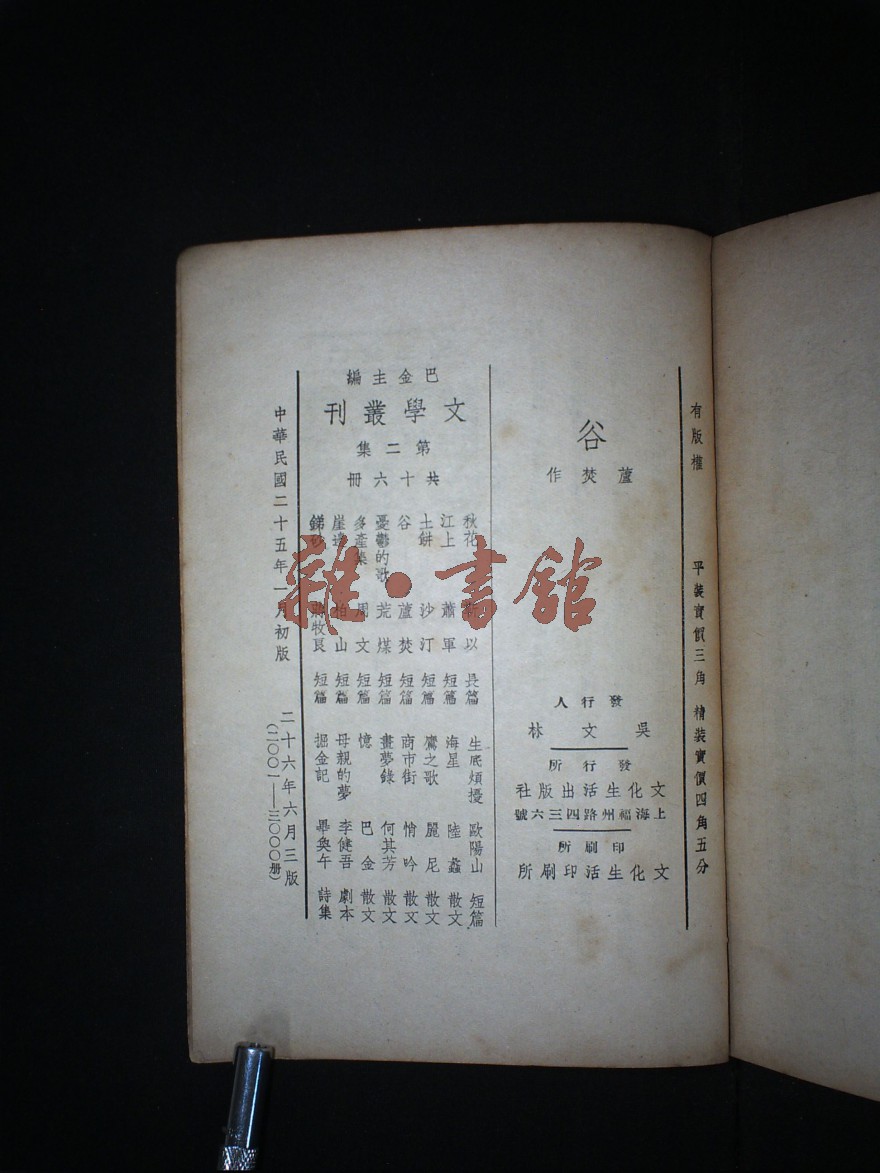 有版權 平裝實價三角 精裝實價四角五分
谷
蘆焚作
發行人
吳文林
發行所
文化生活出版社
上海福州路四三六號
印刷所
文化生活印刷所
巴金主編
文學叢刊
第二集
共十六冊
秋花 靳以 長篇
江上 蕭軍 短篇
土餅 沙汀 短篇
谷 蘆焚 短篇
憂鬱的歌 荒煤 短篇
多產集 周文 短篇
崖邊 柏山 短篇
銻砂 蔣牧良 短篇
生底煩擾 歐陽山 短篇
海星 陸蠡 散文
鷹之歌 麗尼 散文
商市街 悄吟 散文
畫夢錄 何其芳 散文
憶 巴金 散文
母親的夢 李健吾 劇本
掘金記 畢奐午 詩集
中華民國二十五年一月初版
二十六年六月三版
(二〇〇一—三〇〇〇册)
雜·書館